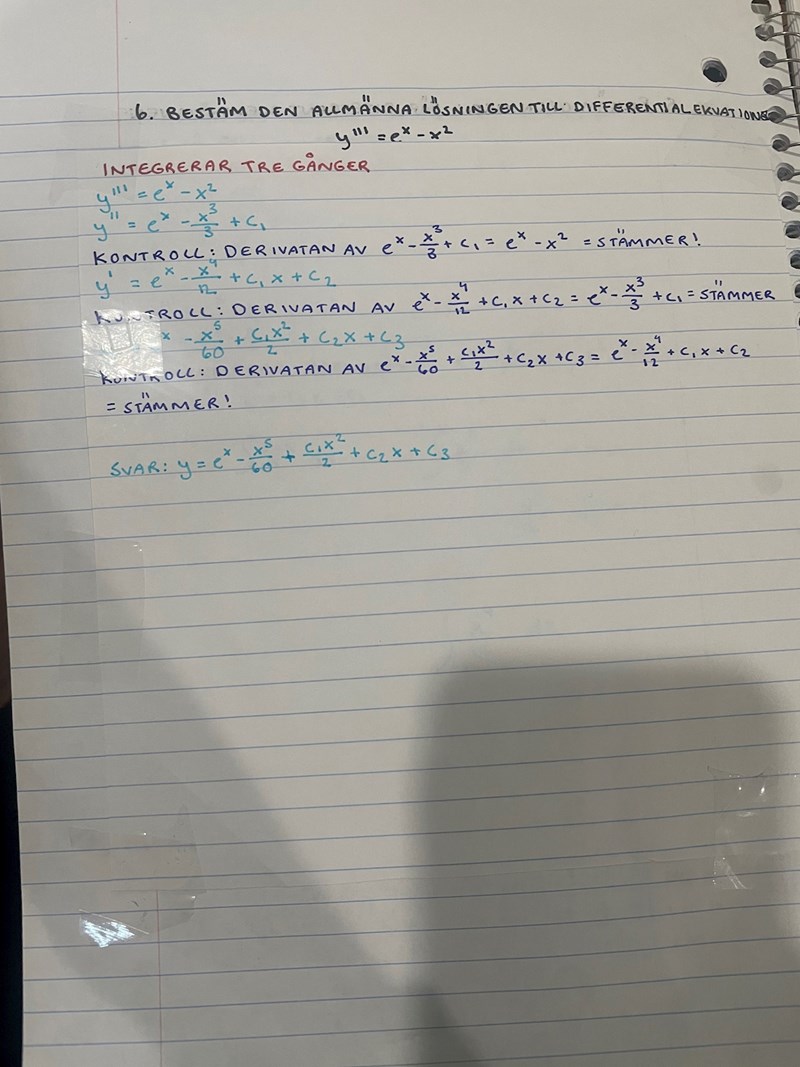 6. BESTÄM DEN ALLMÄNNA LÖSNINGEN TILL DIFFERENTIALEKVATIONEN
y''' = eˣ - x²
INTEGRERAR TRE GÅNGER
y''' = eˣ - x²
y'' = eˣ - x³/3 + C₁
KONTROLL: DERIVATAN AV eˣ - x³/3 + C₁ = eˣ - x² = STÄMMER!
y' = eˣ - x⁴/12 + C₁x + C₂
KONTROLL: DERIVATAN AV eˣ - x⁴/12 + C₁x + C₂ = eˣ - x³/3 + C₁ = STÄMMER
x - x⁵/60 + C₁x²/2 + C₂x + C₃
KONTROLL: DERIVATAN AV eˣ - x⁵/60 + C₁x²/2 + C₂x + C₃ = eˣ - x⁴/12 + C₁x + C₂
= STÄMMER!
SVAR: y = eˣ - x⁵/60 + C₁x²/2 + C₂x + C₃